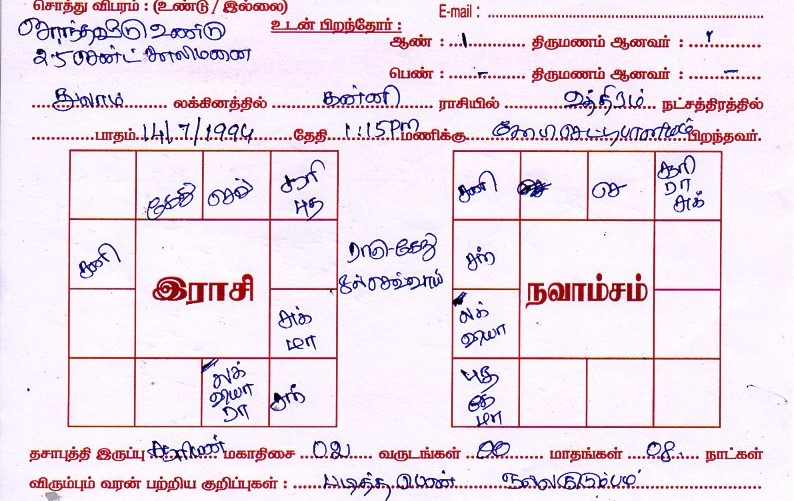 சொத்து விபரம் : (உண்டு / இல்லை)
E-mail :
சொந்தவீடு உண்டு
உடன் பிறந்தோர் :
25 சென்ட் காலிமனை
ஆண் : 1 திருமணம் ஆனவர் :
பெண் : - திருமணம் ஆனவர் : -
துலாம் லக்கினத்தில் கன்னி ராசியில் உத்திரம் நட்சத்திரத்தில்
பாதம் 14/7/1994 தேதி 1:15PM மணிக்கு பிறந்தவர்.
கேது செவ் சூரி புத
சனி
இராசி
சுக் மா
லக் வியா ரா சந்
ராகு-கேது
செவ்வாய்
சனி செ சூரி ரா சுக்
சந்
நவாம்சம்
லக் வியா
புத கே மா
தசாபுத்தி இருப்பு சூரியன் மகாதிசை 02 வருடங்கள் 00 மாதங்கள் 08 நாட்கள்
விரும்பும் வரன் பற்றிய குறிப்புகள் : படித்த பெண் நல்லகுடும்பம்